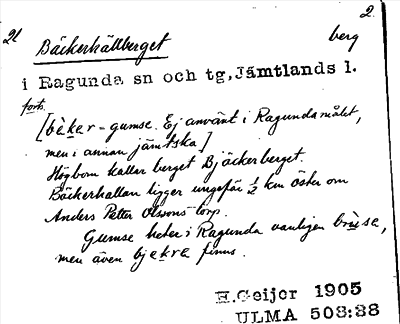 21 2.
Bäckerhällberget berg
i Ragunda sn och tg, Jämtlands l.
forts.
[bèker = gumse. Ej använt i Ragundamålet,
men i annan jämtska]
Högbom kallar berget Bjäckerberget.
Bäckerhallan ligger ungefär ½ km öster om
Anders Petter Olssons torp.
Gumse heter i Ragunda vanligen brùse,
men även bjekre finns.
H.Geijer 1905
ULMA 503:38